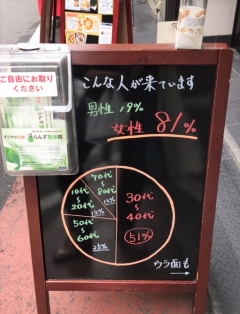 ご自由にお取り
ください
こんな人が来ています
男性 19%
女性 81%
70代
~
80代
12%
10代
~
20代
12%
30代
~
40代
51%
50代
~
60代
25%
ウラ面も
→